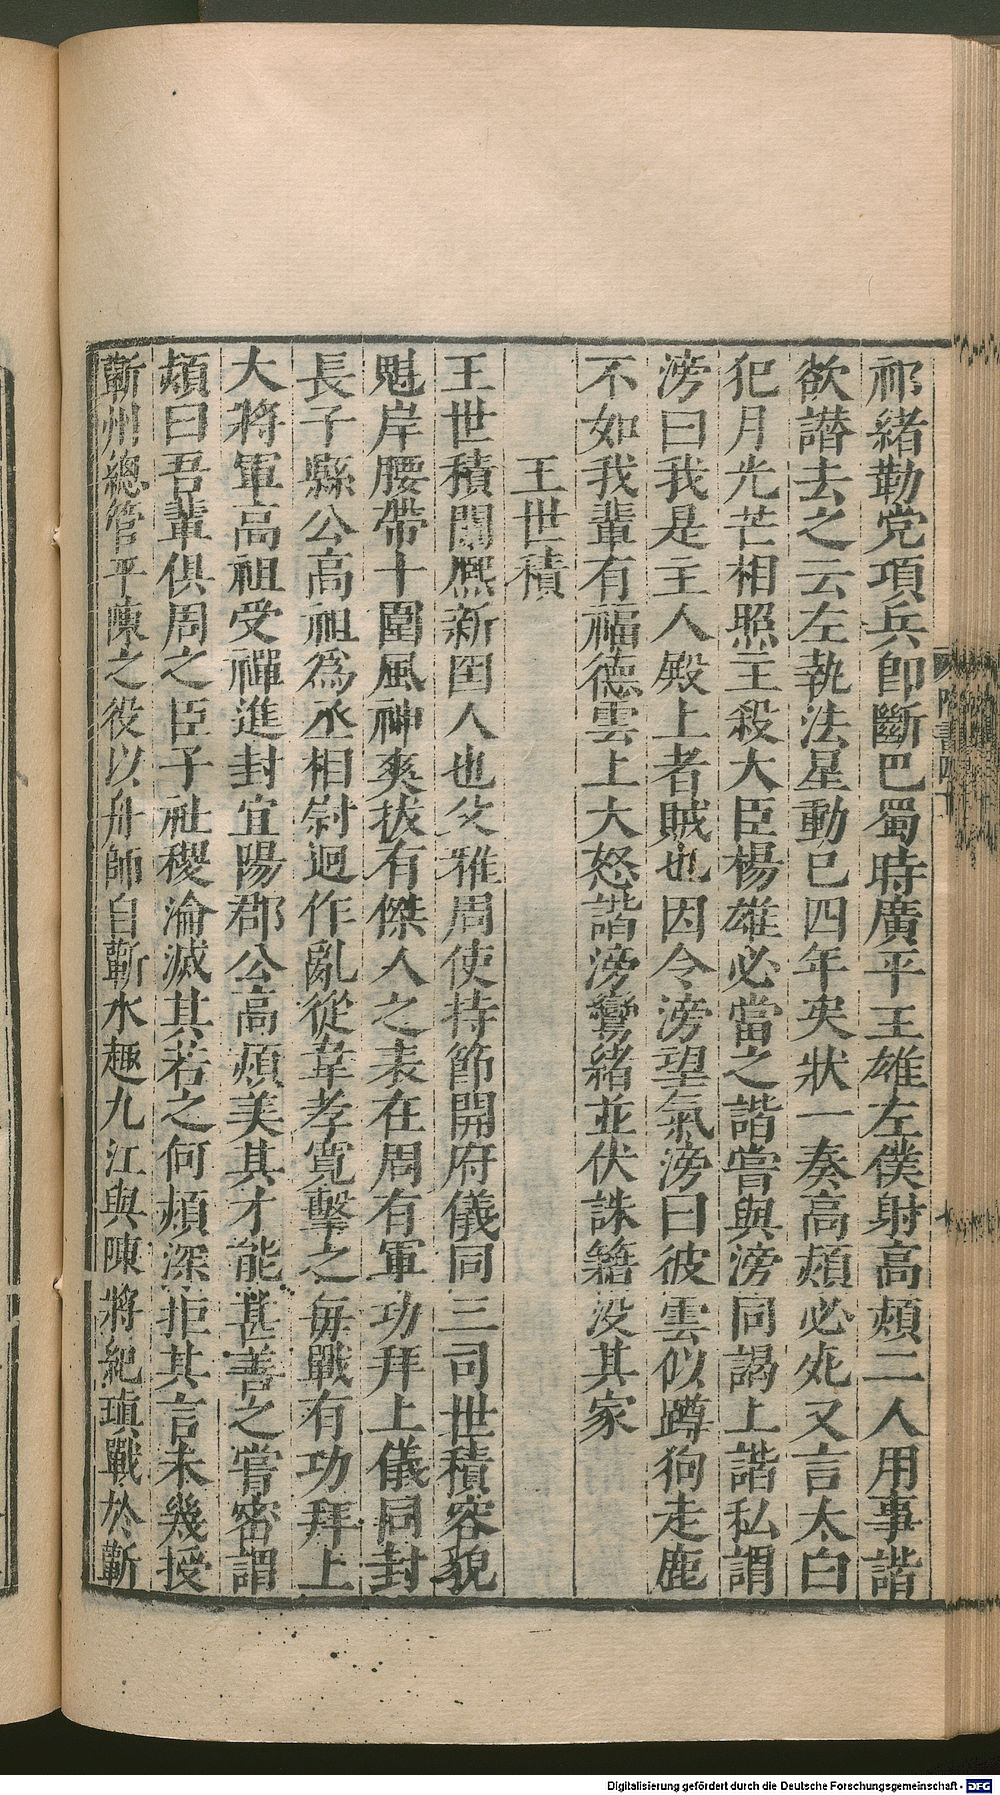 祁緒勒党項兵即斷巴蜀時廣平王雄左僕射高熲二人用事諧
欲譖去之云左執法星動已四年矣狀一奏高熲必死又言太白
犯月光芒相照主殺大臣楊雄必當之諧嘗與滂同謁上諧私謂
滂曰我是主人殿上者賊也因令滂望氣滂曰彼雲似蹲狗走鹿
不如我輩有福德雲上大怒諧滂鸞緒並伏誅籍没其家
王世積
王世積闡熈新囯人也父雅周使持節開府儀同三司世積容貌
魁岸腰帶十圍風神爽拔有傑人之表在周有軍功拜上儀同封
長子縣公高祖為丞相尉迥作亂從韋孝寬擊之毎戰有功拜上
大將軍高祖受禪進封宜陽郡公高熲美其才能甚善之嘗密謂
熲曰吾輩俱周之臣子社稷淪滅其若之何熲深拒其言未幾授
蘄州總管平陳之役以舟師自蘄水趣九江與陳將紀瑱戰於蘄
隋書
Digitalisierung gefördert durch die Deutsche Forschungsgemeinschaft - DFG